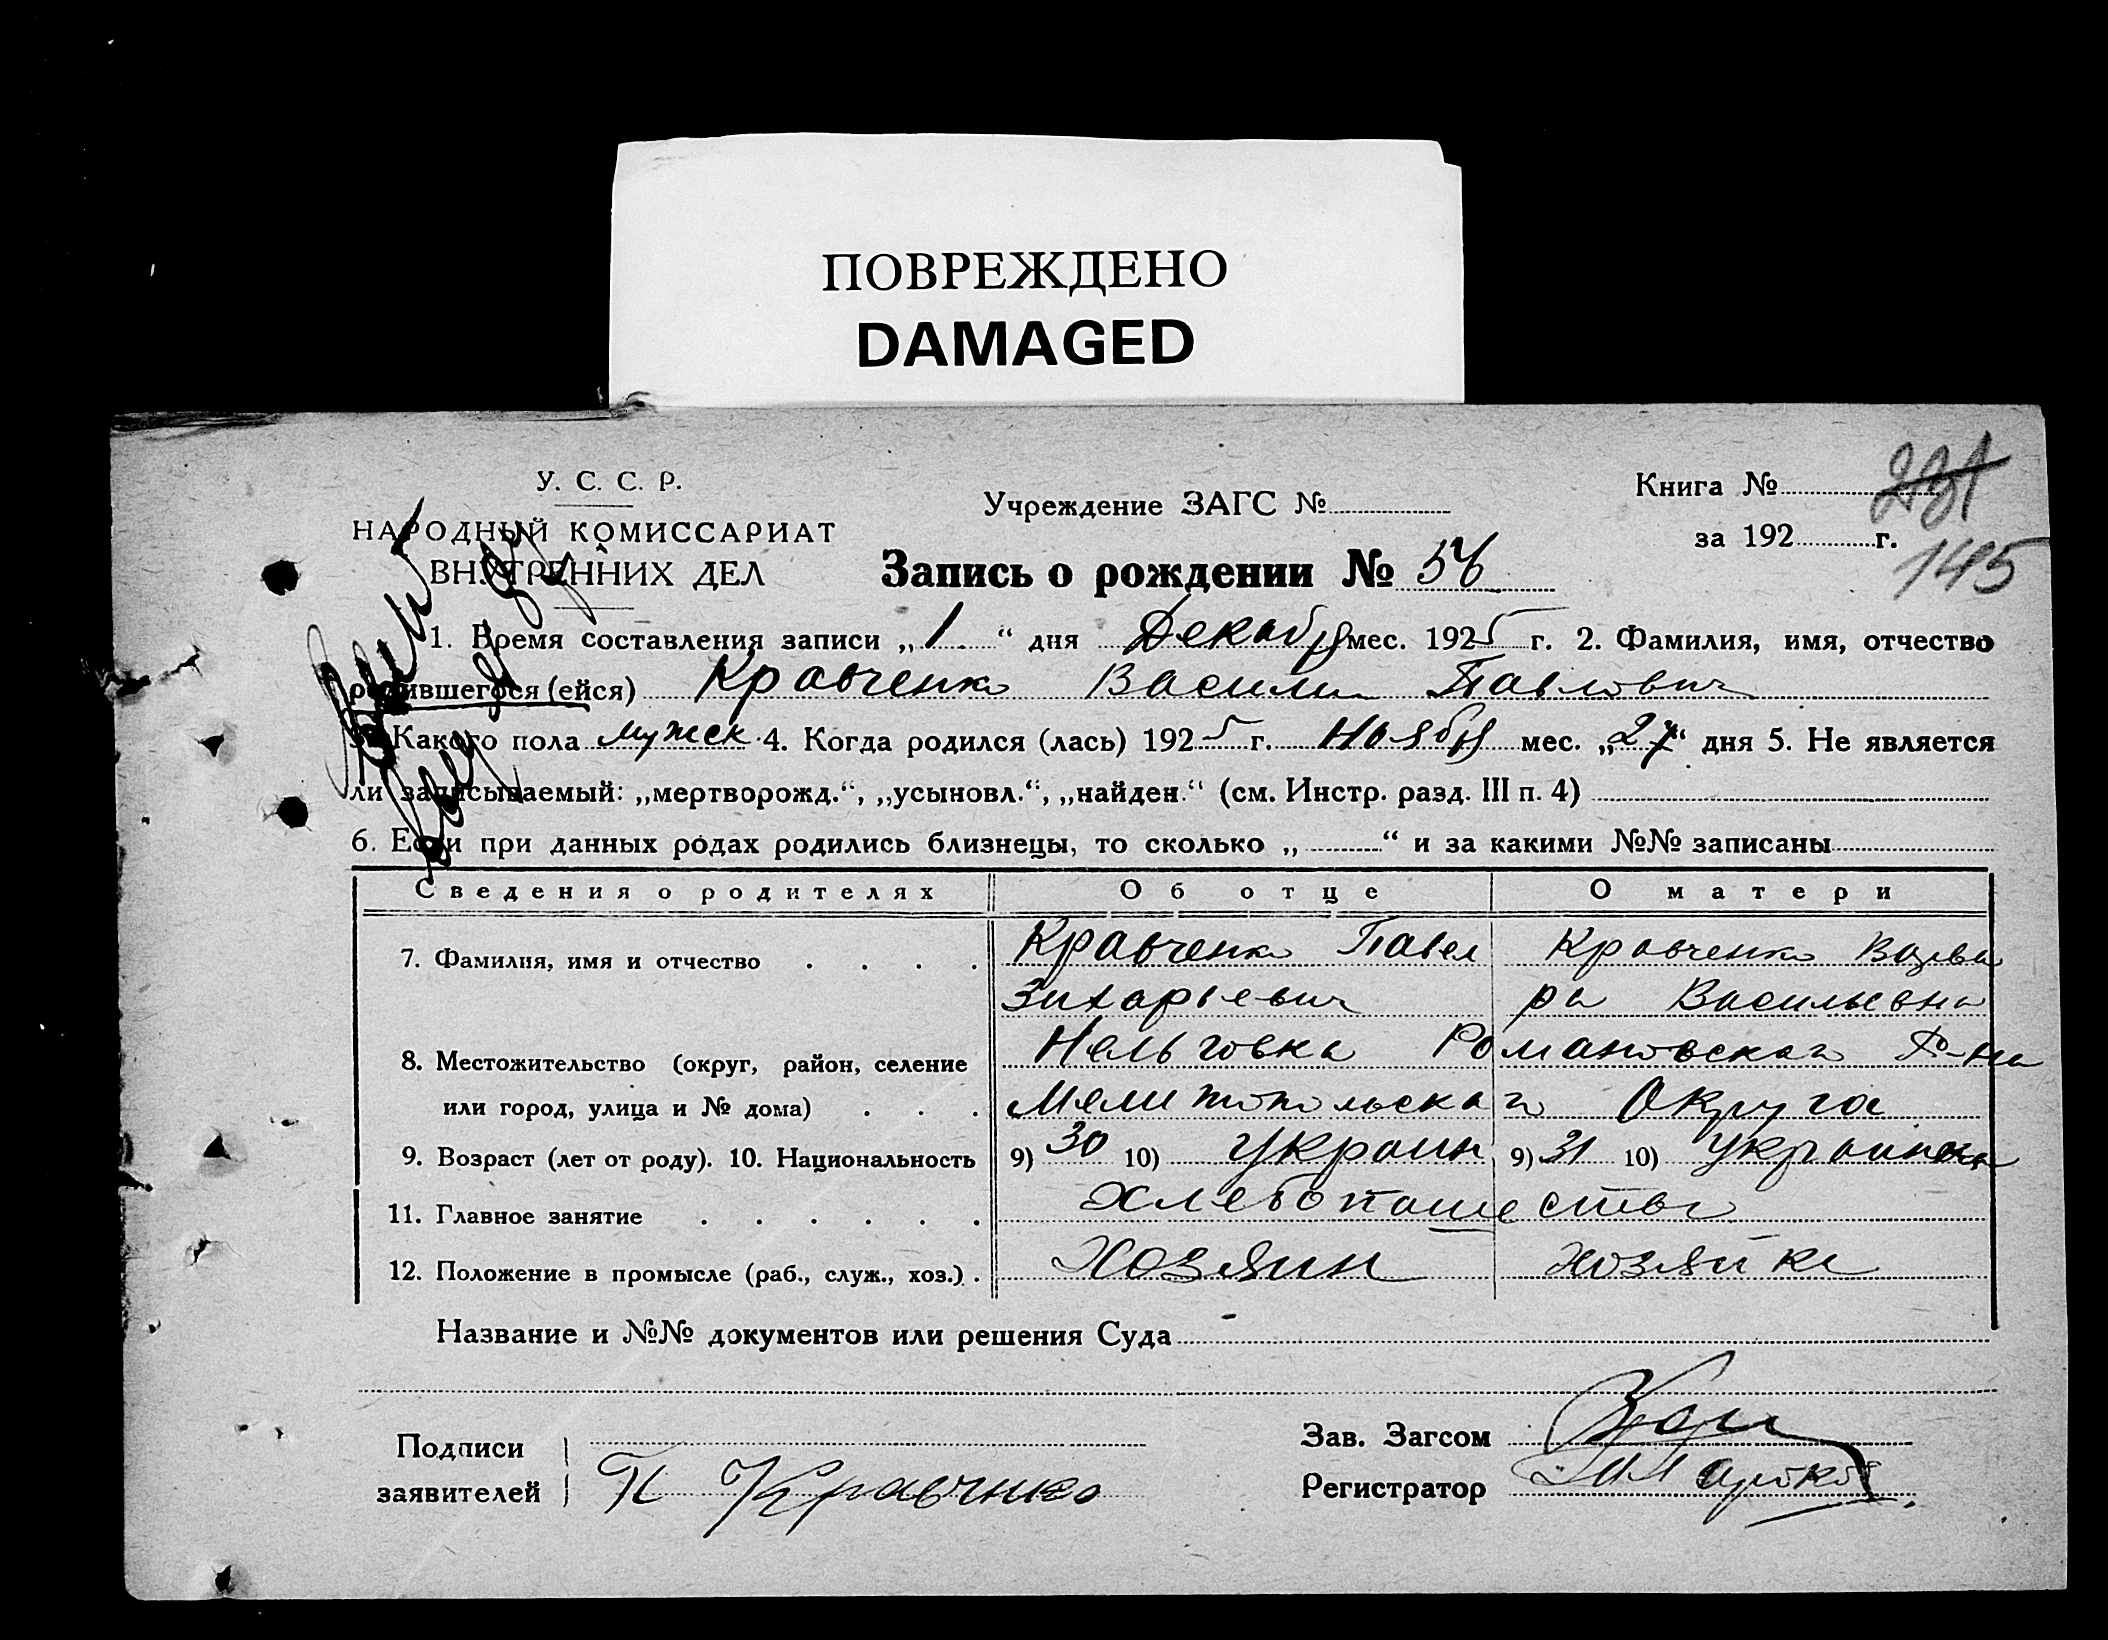 ПОВРЕЖДЕНО
DAMAGED
У. С. С. Р.
НАРОДНЫЙ КОМИССАРИАТ
ВНУТРЕННИХ ДЕЛ
Учреждение ЗАГС №
Книга № 231
за 192 г.
145
Запись о рождении № 56
1. Время составления записи „1“ дня Декабря мес. 1925 г. 2. Фамилия, имя, отчество
родившегося (ейся) Кравченко Василий Павлович
3. Какого пола мужск 4. Когда родился (лась) 1925 г. Ноября мес. „27“ дня 5. Не является
ли записываемый: „мертворожд.“, „усыновл.“, „найден.“ (см. Инстр. разд. III п. 4)
6. Если при данных родах родились близнецы, то сколько „ “ и за какими №№ записаны
Сведения о родителях Об отце О матери
7. Фамилия, имя и отчество Кравченко Павел Кравченко Варва
Захарьевич ра Васильевна
8. Местожительство (округ, район, селение Нельговка Романовскаго Р-на
или город, улица и № дома) Мелитопольскаго Округа
9. Возраст (лет от роду). 10. Национальность 9) 30 10) Украин 9) 31 10) Украинка
11. Главное занятие Хлебопашество
12. Положение в промысле (раб., служ., хоз.) Хозяин хозяйка
Название и №№ документов или решения Суда
Подписи
заявителей П Кравченко
Зав. Загсом
Регистратор